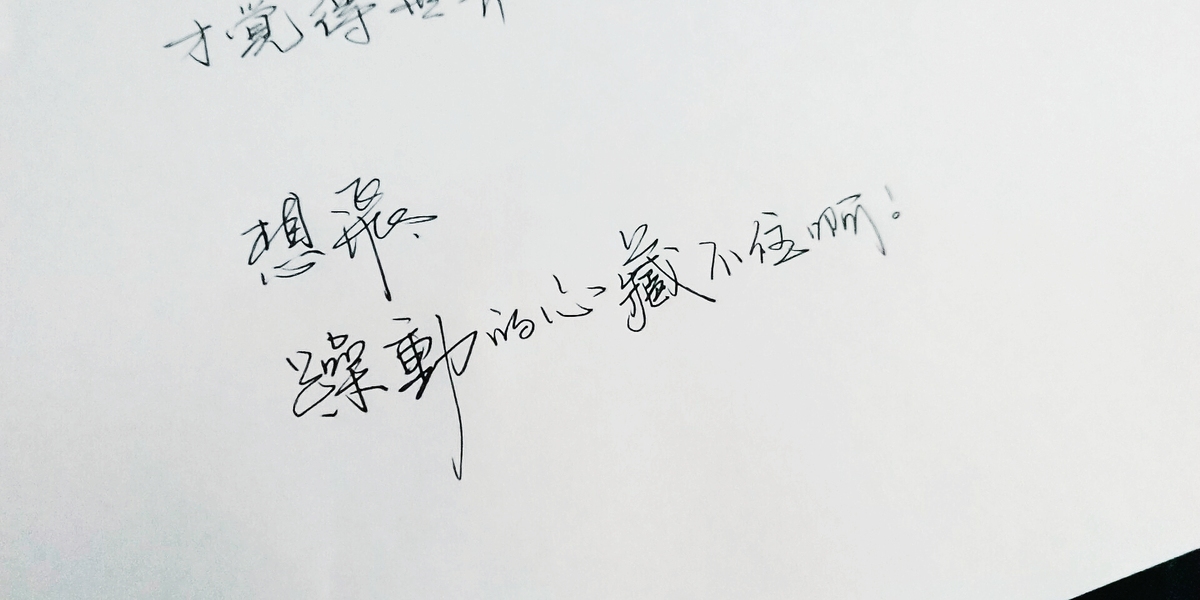 才覺得世界
想飛
躁動的心藏不住啊!